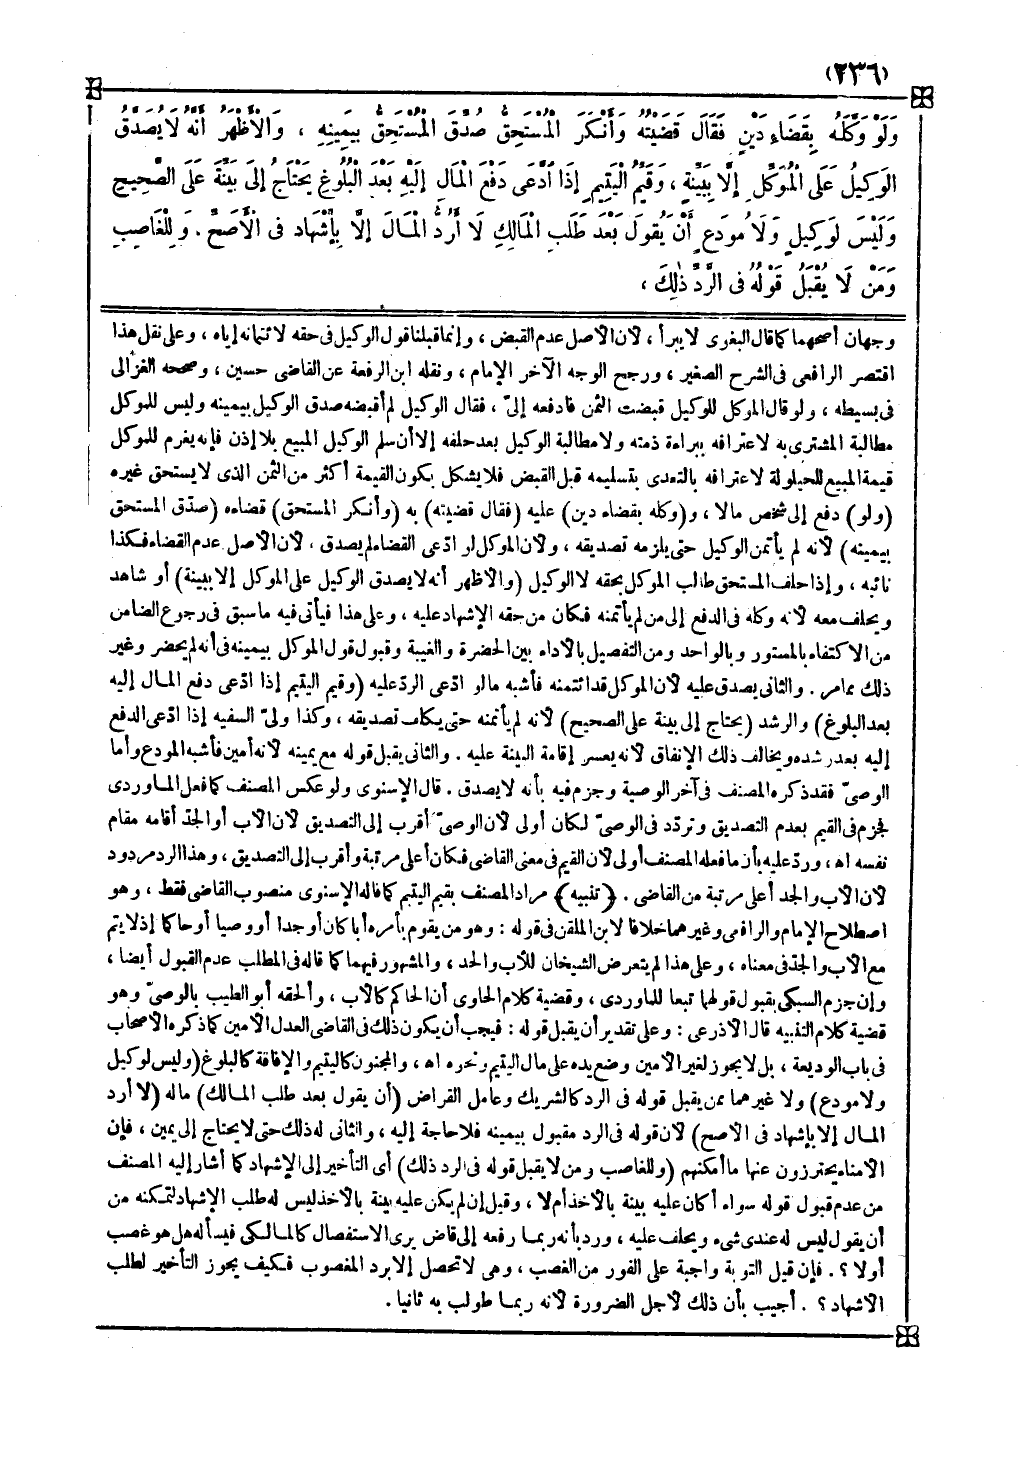 (٢٣٦)
وَلَوْ وَكَّلَهُ بِقَضَاءِ دَيْنٍ فَقَالَ قَضَيْتُهُ وَأَنْكَرَ الْمُسْتَحِقُّ صُدِّقَ الْمُسْتَحِقُّ بِيَمِينِهِ ، وَالْأَظْهَرُ أَنَّهُ لَا يُصَدَّقُ
الْوَكِيلُ عَلَى الْمُوَكِّلِ إِلَّا بِبَيِّنَةٍ ، وَقَيِّمُ الْيَتِيمِ إِذَا ادَّعَى دَفْعَ الْمَالِ إِلَيْهِ بَعْدَ الْبُلُوغِ يَحْتَاجُ إِلَى بَيِّنَةٍ عَلَى الصَّحِيحِ
وَلَيْسَ لِوَكِيلٍ وَلَا مُودَعٍ أَنْ يَقُولَ بَعْدَ طَلَبِ الْمَالِكِ لَا أَرُدُّ الْمَالَ إِلَّا بِإِشْهَادٍ فِى الْأَصَحِّ . وَلِلْغَاصِبِ
وَمَنْ لَا يُقْبَلُ قَوْلُهُ فِى الرَّدِّ ذٰلِكَ ،
وجهان أصحهما كما قال البغوى لا يبرأ ، لأن الأصل عدم القبض ، وإنما قبلنا قول الوكيل فى حقه لائتمانه إياه ، وعلى نقل هذا
اقتصر الرافعى فى الشرح الصغير ، ورجح الوجه الآخر الإمام ، ونقله ابن الرفعة عن القاضى حسين ، وصححه الغزالى
فى بسيطه ، ولو قال الموكل للوكيل قبضت الثمن فادفعه إلىّ ، فقال الوكيل لم أقبضه صدق الوكيل بيمينه وليس للموكل
مطالبة المشترى به لاعترافه ببراءة ذمته ولا مطالبة الوكيل بعد حلفه إلا أن سلم الوكيل المبيع بلا إذن فإنه يغرم للموكل
قيمة المبيع للحيلولة لاعترافه بالتعدى بتسليمه قبل القبض فلا يشكل بكون القيمة أكثر من الثمن الذى لا يستحق غيره
(ولو) دفع إلى شخص مالا ، و(وكله بقضاء دين) عليه (فقال قضيته) به (وأنكر المستحق) قضاءه (صدّق المستحق
بيمينه) لأنه لم يأتمن الوكيل حتى يلزمه تصديقه ، ولأن الموكل لو ادّعى القضاء لم يصدق ، لأن الأصل عدم القضاء فكذا
نائبه ، وإذا حلف المستحق طالب الموكل بحقه لا الوكيل (والأظهر أنه لا يصدق الوكيل على الموكل إلا ببينة) أو شاهد
ويحلف معه لأنه وكله فى الدفع إلى من لم يأتمنه فكان من حقه الإشهاد عليه ، وعلى هذا فيأتى فيه ما سبق فى رجوع الضامن
من الاكتفاء بالمستور وبالواحد ومن التفصيل بالأداء بين الحضرة والغيبة وقبول قول الموكل بيمينه فى أنه لم يحضر وغير
ذلك مما مر . والثانى يصدق عليه لأن الموكل قد ائتمنه فأشبه ما لو ادّعى الردّ عليه (وقيم اليتيم إذا ادّعى دفع المال إليه
بعد البلوغ) والرشد (يحتاج إلى بينة على الصحيح) لأنه لم يأتمنه حتى يكلف تصديقه ، وكذا ولىّ السفيه إذا ادّعى الدفع
إليه بعد رشده ويخالف ذلك الإنفاق لأنه يعسر إقامة البينة عليه . والثانى يقبل قوله مع يمينه لأنه أمين فأشبه المودع وأما
الوصىّ فقد ذكره المصنف فى آخر الوصية وجزم فيه بأنه لا يصدق . قال الإسنوى ولو عكس المصنف كما فعل الماوردى
فجزم فى القيم بعدم التصديق وتردّد فى الوصىّ لكان أولى لأن الوصىّ أقرب إلى التصديق لأن الأب أو الجدّ أقامه مقام
نفسه اه ، وردّ عليه بأن ما فعله المصنف أولى لأن القيم فى معنى القاضى فكان أعلى مرتبة وأقرب إلى التصديق ، وهذا الرد مردود
لأن الأب والجد أعلى مرتبة من القاضى . ﴿تنبيه﴾ مراد المصنف بقيم اليتيم كما قاله الإسنوى منصوب القاضى فقط ، وهو
اصطلاح الإمام والرافعى وغيرهما خلافا لابن الملقن فى قوله : وهو من يقوم بأمره أبا كان أو جدا أو وصيا أو حاكما إذ لا يتم
مع الأب والجدّ فى معناه ، وعلى هذا لم يتعرض الشيخان للأب والجد ، والمشهور فيهما كما قاله فى المطلب عدم القبول أيضا ،
وإن جزم السبكى بقبول قولهما تبعا للماوردى ، وقضية كلام الحاوى أن الحاكم كالأب ، وألحقه أبو الطيب بالوصىّ وهو
قضية كلام التنبيه قال الأذرعى : وعلى تقدير أن يقبل قوله : فيجب أن يكون ذلك فى القاضى العدل الأمين كما ذكره الأصحاب
فى باب الوديعة ، بل لا يجوز لغير الأمين وضع يده على مال اليتيم ونحوه اه ، والمجنون كاليتيم والإفاقة كالبلوغ (وليس لوكيل
ولا مودع) ولا غيرهما ممن يقبل قوله فى الرد كالشريك وعامل القراض (أن يقول بعد طلب المالك) ماله (لا أرد
المال إلا بإشهاد فى الأصح) لأن قوله فى الرد مقبول بيمينه فلا حاجة إليه ، والثانى له ذلك حتى لا يحتاج إلى يمين ، فإن
الأمناء يحترزون عنها ما أمكنهم (وللغاصب ومن لا يقبل قوله فى الرد ذلك) أى التأخير إلى الإشهاد كما أشار إليه المصنف
من عدم قبول قوله سواء أكان عليه بينة بالأخذ أم لا ، وقيل إن لم يكن عليه بينة بالأخذ ليس له طلب الإشهاد لتمكنه من
أن يقول ليس له عندى شىء ويحلف عليه ، ورد بأنه ربما رفعه إلى قاض يرى الاستفصال كالمالكى فيسأله هل هو غصب
أولا ؟ . فإن قيل التوبة واجبة على الفور من الغصب ، وهى لا تحصل إلا برد المغصوب فكيف يجوز التأخير لطلب
الإشهاد ؟ . أجيب بأن ذلك لأجل الضرورة لأنه ربما طولب به ثانيا .